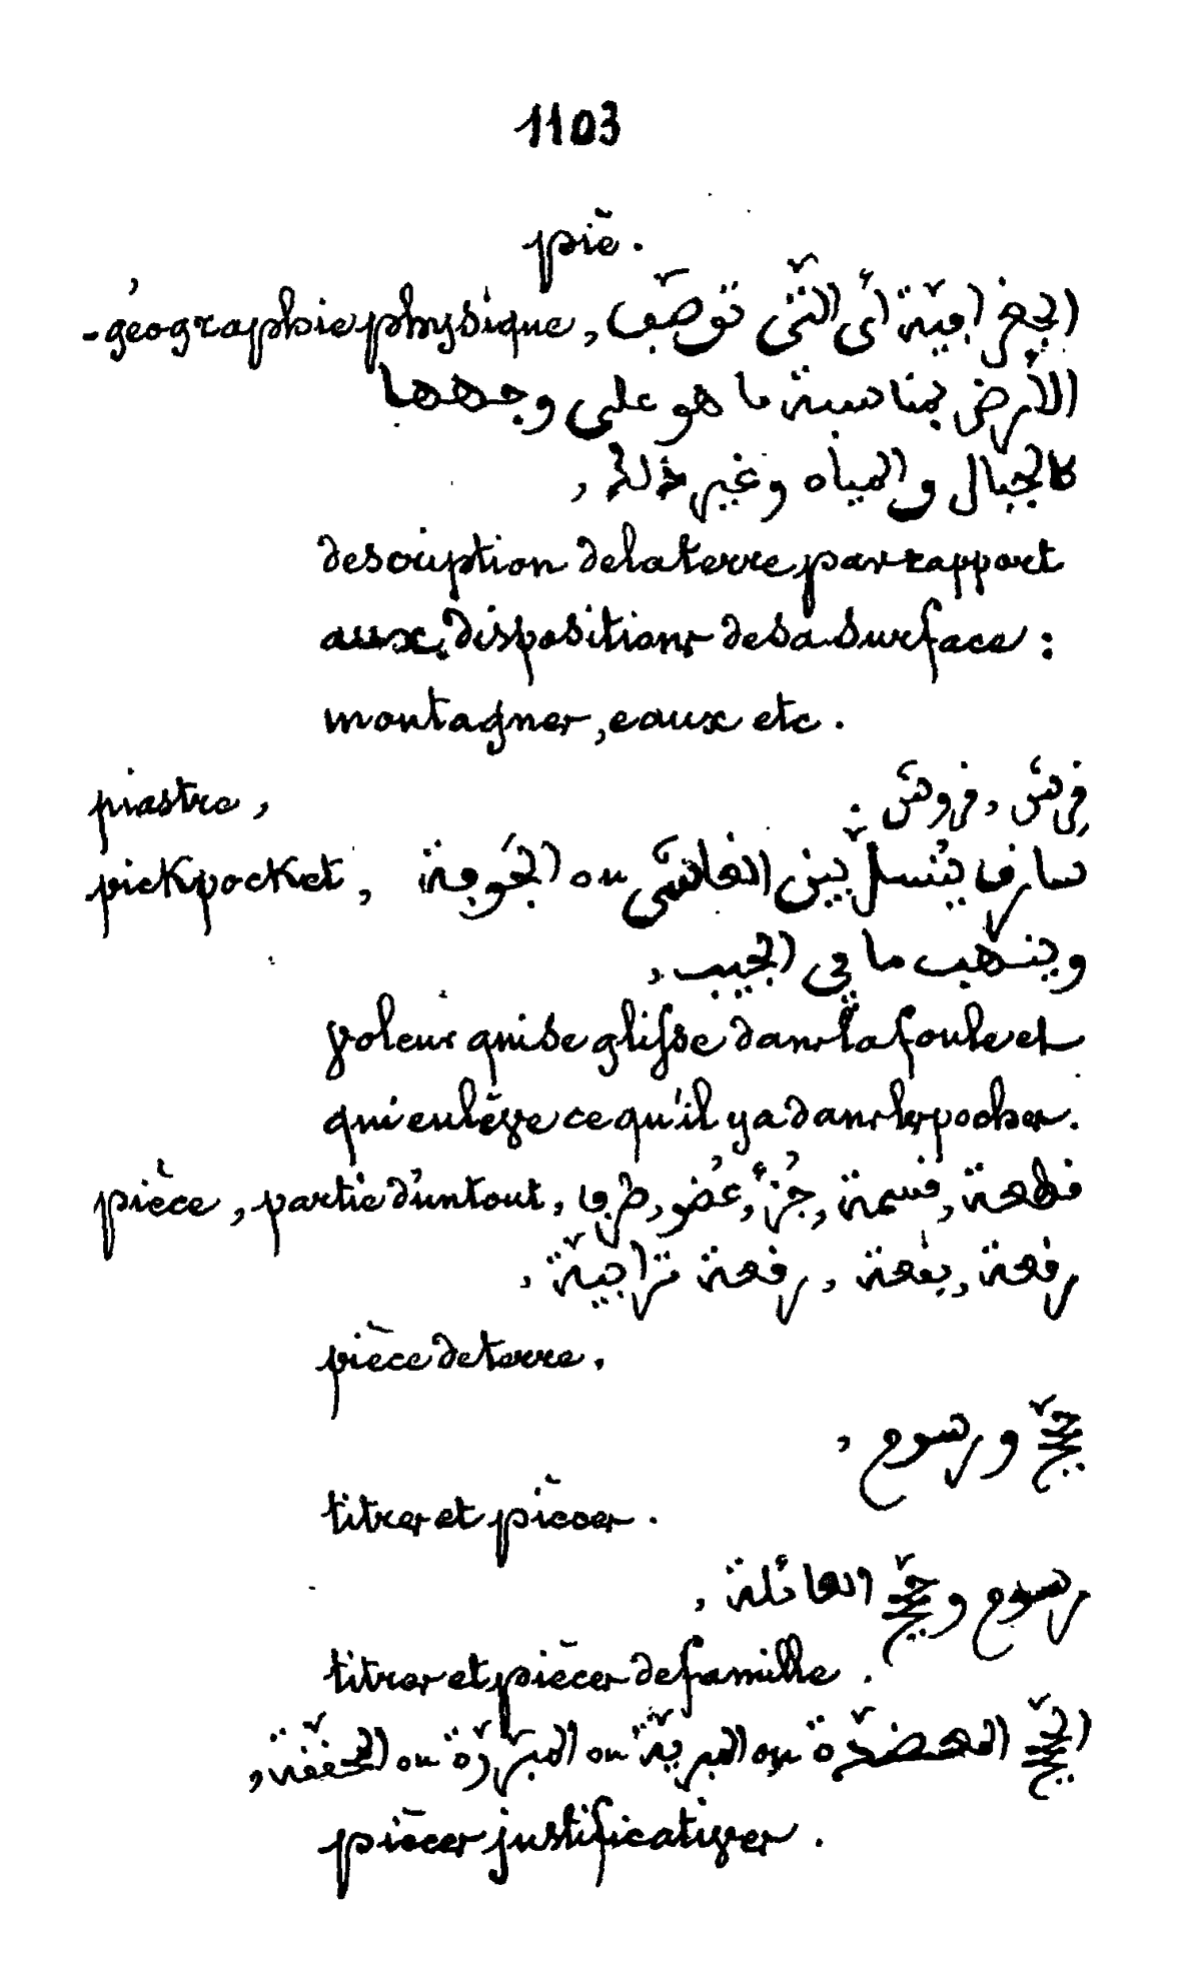 1103
piè.
-géographie physique, الجغرافيّة أي الّتي توصّف
الأرض بمناسبة ما هو على وجهها
كالجبال والمياه وغير ذلك,
description de la terre par rapport
aux dispositions de sa surface :
montagnes, eaux etc.
piastre, فرش, فروش.
pickpocket, سارق يتسلّ بين الغاشي ou الجَوقة
وينهب ما في الجيب,
voleur qui se glisse dans la foule et
qui enlève ce qu'il y a dans les poches.
pièce, partie d'un tout, قطعة, قسمة, جُزْأ, عُضو, طرف
رقعة, بقعة, رقعة ترابيّة,
pièce de terre.
حجّج ورسوم,
titres et pièces.
رسوم وحجّج العائلة,
titres et pièces de famille.
الحجّج المعضّدة ou المبريّة ou المبرّرة ou المحقّقة,
pièces justificatives.